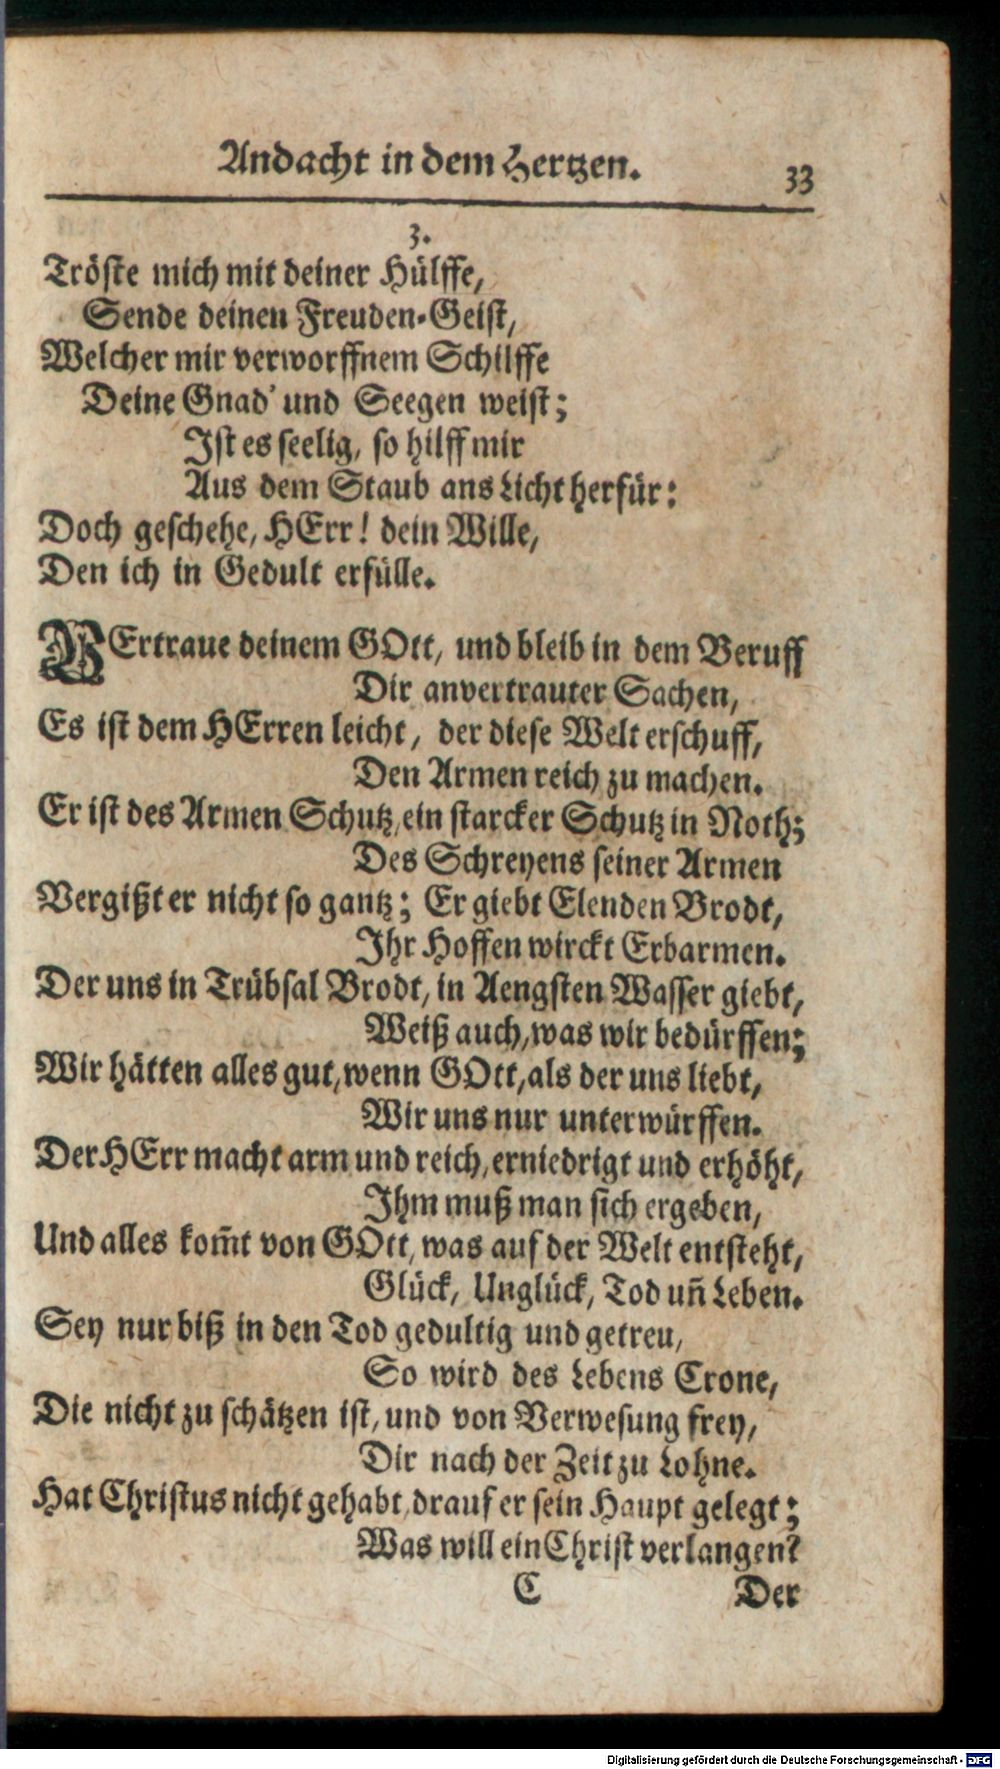 Andacht in dem Hertzen. 33
3.
Tröste mich mit deiner Hülffe,
Sende deinen Freuden-Geist,
Welcher mir verworffnem Schilffe
Deine Gnad' und Seegen weist;
Ist es seelig, so hilff mir
Aus dem Staub ans Licht herfür:
Doch geschehe, HErr! dein Wille,
Den ich in Gedult erfülle.
VErtraue deinem GOtt, und bleib in dem Beruff
Dir anvertrauter Sachen,
Es ist dem HErren leicht, der diese Welt erschuff,
Den Armen reich zu machen.
Er ist des Armen Schutz, ein starcker Schutz in Noth;
Des Schreyens seiner Armen
Vergißt er nicht so gantz; Er giebt Elenden Brodt,
Ihr Hoffen wirckt Erbarmen.
Der uns in Trübsal Brodt, in Aengsten Wasser giebt,
Weiß auch, was wir bedürffen;
Wir hätten alles gut, wenn GOtt, als der uns liebt,
Wir uns nur unterwürffen.
Der HErr macht arm und reich, erniedrigt und erhöht,
Ihm muß man sich ergeben,
Und alles kom̃t von GOtt, was auf der Welt entsteht,
Glück, Unglück, Tod uñ Leben.
Sey nur biß in den Tod gedultig und getreu,
So wird des Lebens Crone,
Die nicht zu schätzen ist, und von Verwesung frey,
Dir nach der Zeit zu Lohne.
Hat Christus nicht gehabt, drauf er sein Haupt gelegt;
Was will ein Christ verlangen?
C Der
Digitalisierung gefördert durch die Deutsche Forschungsgemeinschaft - DFG